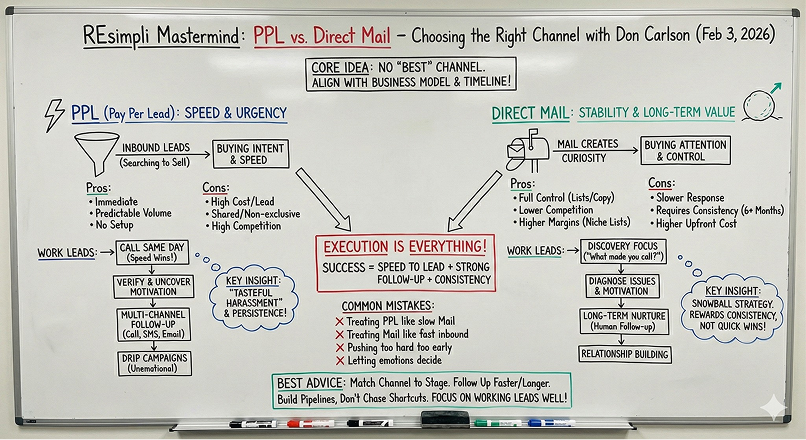 REsimpli Mastermind: PPL vs. Direct Mail – Choosing the Right Channel with Don Carlson (Feb 3, 2026)
CORE IDEA: NO "BEST" CHANNEL.
ALIGN WITH BUSINESS MODEL & TIMELINE!
PPL (Pay Per Lead): SPEED & URGENCY
INBOUND LEADS
(Searching to Sell)
BUYING INTENT
& SPEED
Pros:
• Immediate
• Predictable Volume
• No Setup
Cons:
• High Cost/Lead
• Shared/Non-exclusive
• High Competition
WORK LEADS:
CALL SAME DAY
(Speed Wins!)
VERIFY & UNCOVER
MOTIVATION
MULTI-CHANNEL
FOLLOW-UP
(Call, SMS, Email)
DRIP CAMPAIGNS
(Unemational)
KEY INSIGHT:
"TASTEFUL
HARASSMENT"
& PERSISTENCE!
EXECUTION IS EVERYTHING!
SUCCESS = SPEED TO LEAD + STRONG
FOLLOW-UP + CONSISTENCY
COMMON MISTAKES:
X Treating PPL like slow Mail
X Treating Mail like fast inbound
X Pushing too hard too early
X Letting emotions decide
DIRECT MAIL: STABILITY & LONG-TERM VALUE
MAIL CREATES
CURIOSITY
BUYING ATTENTION
& CONTROL
Pros:
• Full Control (Lists/Copy)
• Lower Competition
• Higher Margins (Niche Lists)
Cons:
• Slower Response
• Requires Consistency (6+ Months)
• Higher Upfront Cost
WORK LEADS:
DISCOVERY FOCUS
("What made you call?")
DIAGNOSE ISSUES
& MOTIVATION
LONG-TERM NURTURE
(Human Follow-up)
RELATIONSHIP BUILDING
KEY INSIGHT:
SNOWBALL STRATEGY.
REWARDS CONSISTENCY,
NOT QUICK WINS!
BEST ADVICE: Match Channel to Stage. Follow Up Faster/Longer.
Build Pipelines, Don't Chase Shortcuts. FOCUS ON WORKING LEADS WELL!